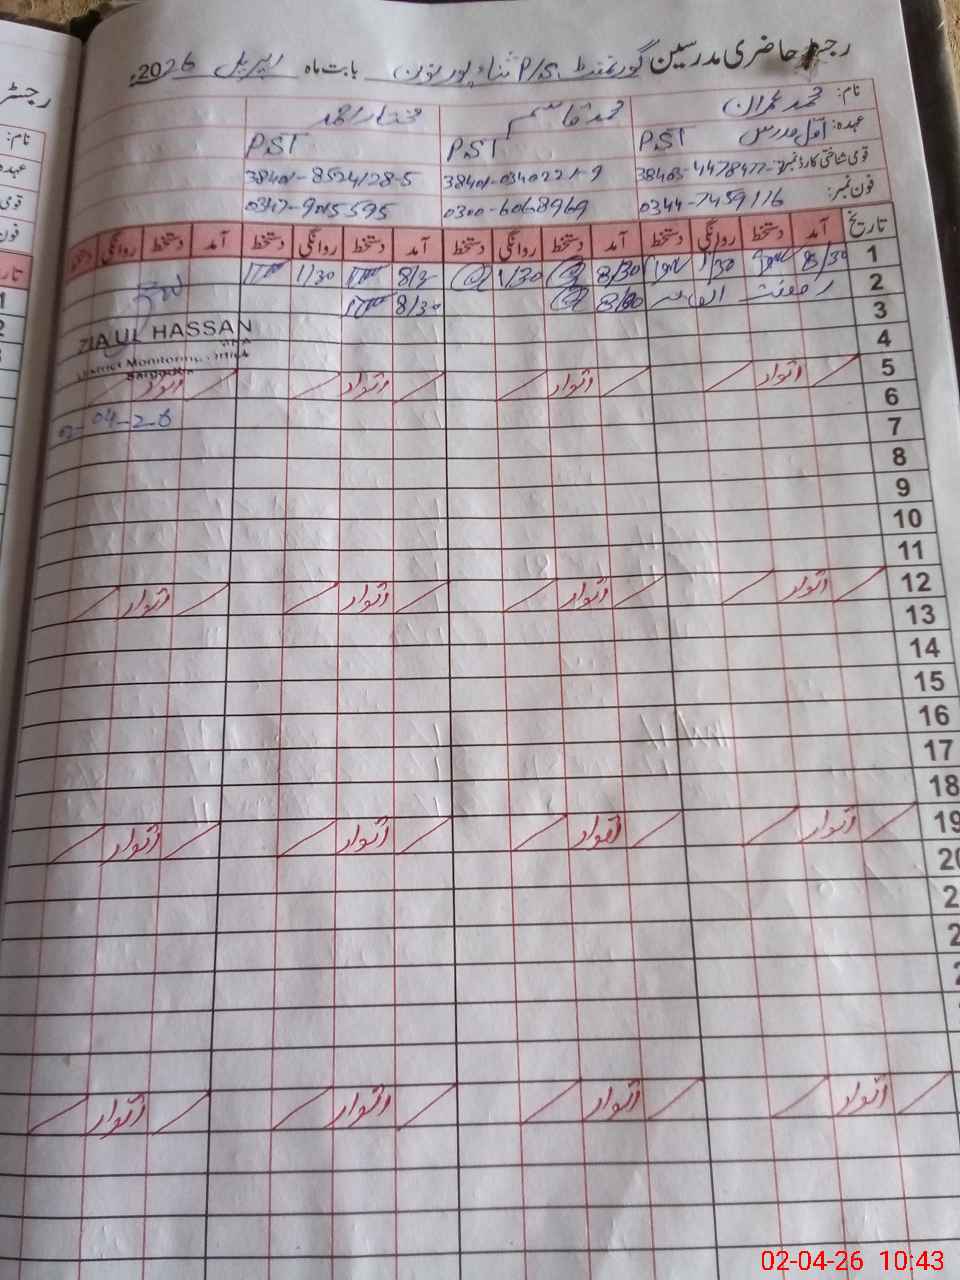 رجسٹر حاضری مدرسین گورنمنٹ P/S ثناء پور نون بابت ماہ اپریل 2026ء
نام: محمد عمران محمد قاسم مختار احمد
عہدہ: اول مدرس PST PST PST
قومی شناختی کارڈ نمبر: 38403-4478477- 38401-0340221-9 38401-8524128-5
فون نمبر: 0344-7459116 0300-6068969 0347-9015595
تاریخ آمد دستخط روانگی دستخط آمد دستخط روانگی دستخط آمد دستخط روانگی دستخط آمد دستخط روانگی دستخط
1 8/30 1/30 8/30 1/30 8/3 1/30
2 رخصت 8/30 8/30
3
ZIA UL HASSAN
4
District Monitoring
5 اتوار اتوار اتوار اتوار
6
02-04-26
7
8
9
10
11
12 اتوار اتوار اتوار اتوار
13
14
15
16
17
18
19 اتوار اتوار اتوار اتوار
20
2
2
2
اتوار اتوار اتوار اتوار
02-04-26 10:43